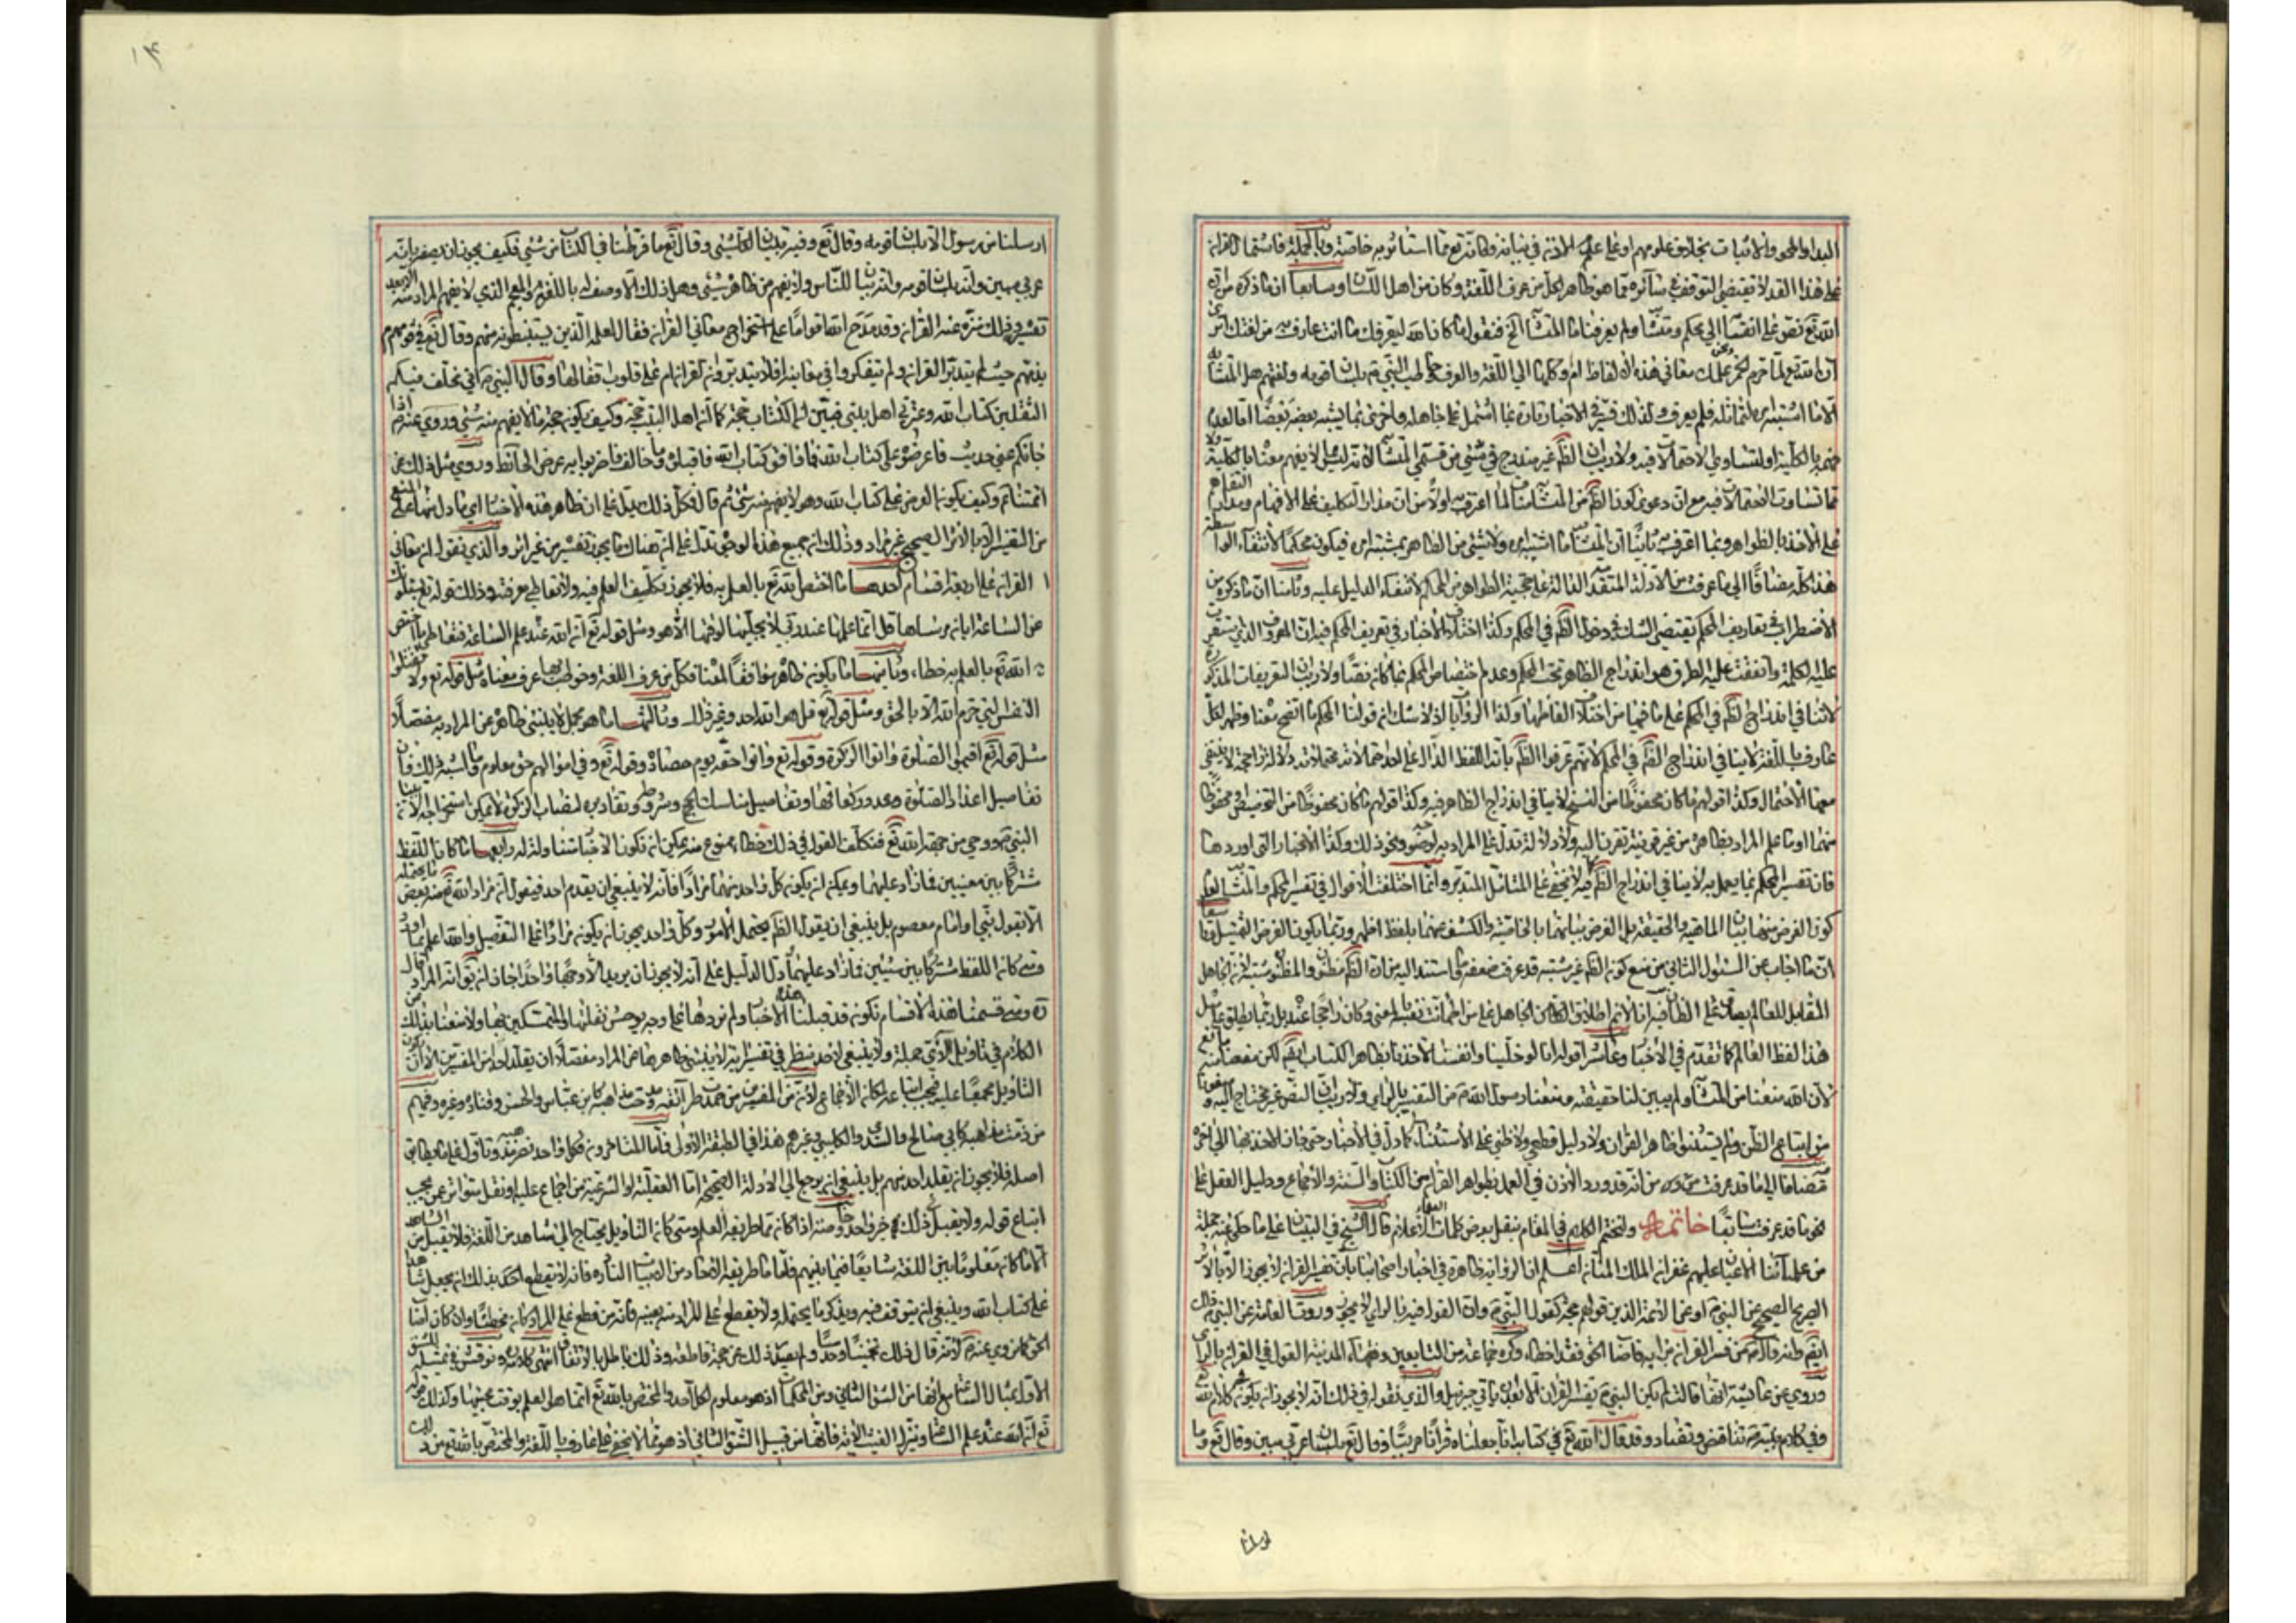 البداء والمحو والاثبات بخلاف علومهم او على علمهم المدة في بيانه وكانه تع مما استاثر به خاصة وبالجملة فاشتمال القرآن
على هذا القدر لا تقتضي التوقف في سائره مما هو ظاهر لكل من عرف اللغة وكان من اهل اللسان وسابعا ان ما ذكره من ان
الله تع نص على انقسامه الى محكم ومتشابه ولم يعرفنا ما المتشابه الخ فنقول ما كان الله ليعرفك ما انت عارف به من لغتك
ان الله تع لما حرم الخمر معاني هذه الالفاظ ام وكلها الى اللغة والعرف خاطب النبي ص بلسان قومه ولغتهم هل المتشابه
الا ما اشتبه المراد
بالكلية او لتساوي الاحتمالات فيه ولا ريب ان الظاهر غير مندرج في شيء من قسمي المتشابه لا يفهم معناه بالكلية
مما تساوت الاحتمالات فيه مع ان دعوى كون الظاهر من المتشابه اولا من ان مدار التكليف على الافهام ومدار
على الاخذ بالظواهر وبما اعترف به ثانيا ان المتشابه ما اشتبه المراد ولا شيء من الظاهر بمشتبه المراد فيكون محكما لانتفاء الواسطة
هذا كله مضافا الى ما عرفت من الادلة المتقدمة الدالة على حجية الظواهر من المحكم لانتفاء الدليل عليه وثامنا ان ما ذكره من
الاضطراب في تعاريف المحكم يقتضي الشك في دخول الظاهر في المحكم وكذا اختلاف الاخبار في تعريف المحكم فيه ان المعروف الذي
عليه الكلمة واتفقت عليه الطرق هو اندراج الظاهر تحت المحكم وعدم اختصاص المحكم بما كان نصا ولا ريب ان التعريفات المذكورة
لا تنافي اندراج الظاهر في المحكم على ما فيها من اختلاف الفاظها وكذا الروايات اذ لا شك ان قولنا المحكم ما اتضح معناه وظهر لكل
عارف باللغة لا ينافي اندراج الظاهر في المحكم لانهم عرفوا الظاهر بانه اللفظ الدال على احد محتملاته دلالة راجحة لا ينتفي
معها الاحتمال وكذا قولهم ما كان محفوظا من النسخ لا ينافي اندراج الظاهر فيه وكذا قولهم ما كان محفوظا من التخصيص محفوظا
منهما او ما علم المراد بظاهره من غير قرينة تقترن اليه ولا دلالة تدل على المراد به لوضوحه ونحو ذلك وكذا الاخبار التي اوردها
فان تفسير المحكم بما يعمل به لا ينافي اندراج الظاهر فيه كما لا يخفى على المتامل المتدبر وانما اختلفت الاقوال في تفسير المحكم والمتشابه لعدم
كون الغرض منها بيان الماهية والحقيقة بل الغرض بيانهما بالخاصية والكشف عنهما بلفظ اظهر وربما يكون الغرض التمثيل وتاسعا
ان ما اجاب عن السؤال الثاني من منع كون الظاهر غير مشتبه قد عرفت ضعفه وما استند اليه من ان الظاهر مظنون والمظنون مشتبه لان الجاهل
المقابل للعالم يصدق على الظان فيه انا لا نم اطلاق الجاهل على من اطمانت نفسه بالمعنى وكان راجحا عنده بل ربما يطلق عليه بل
هذا لفظ العالم كما تقدم في الاخبار وعاشرا قوله انا لو خلينا وانفسنا لاخذنا بظاهر الكتاب ايضا لكن منعنا منه
لان الله منعنا من المتشابه ولم يبين لنا حقيقته ومنعنا رسول الله ص من التفسير بالراي ولا ريب ان النص غير محتاج اليه
من اتباع الظن ولم يستثنوا ظاهر القران ولا دليل قطعي ولا ظني على الاستثناء كما دل في الاخبار حتى جاز الاخذ بها الى اخره
مضافا الى ما قد عرفت من انه قد ورد الاذن في العمل بظواهر القرآن من الكتاب والسنة والاجماع ودليل العقل على
نحو ما قد عرفت سابقا خاتمة ولنختم الكلام في المقام بنقل بعض كلمات العلماء الاعلام قال الشيخ في التبيان على ما حكى عنه جملة
من علمائنا الاعيان عليهم غفران الملك المنان اعلم ان الرواية ظاهرة في اخبار اصحابنا بان تفسير القران لا يجوز الا بالاثر
الصحيح عن النبي ص او عن الائمة الذين قولهم حجة كقول النبي ص وان القول فيه بالراي لا يجوز وروت العامة عن النبي ص
ايضا انه قال من فسر القران برايه فاصاب الحق فقد اخطا وكره جماعة من التابعين وفقهاء المدينة القول في القران بالراي
وروي عن عائشة انها قالت لم يكن النبي ص يفسر القران الا بعد ياتي جبرئيل والذي نقوله في ذلك انه لا يجوز ان يكون في كلام الله
وفي كلام نبيه ص تناقض وتضاد وقد قال الله تع في كتابه انا جعلناه قرآنا عربيا وقال تع بلسان عربي مبين وقال تع وما
ارسلنا
١٤
ارسلنا من رسول الا بلسان قومه وقال تع وفيه تبيان كل شيء وقال تع ما فرطنا في الكتاب من شيء فكيف يجوز ان يصفه بانه
عربي مبين وانه بلسان قومه وانه بيان للناس ولا يفهم من ظاهره شيء وهل ذلك الا وصف له باللغز والمعمى الذي لا يفهم المراد منه الا بعد
تفسيره وذلك منزه عنه القران وقد مدح الله اقواما على استخراج معاني القران فقال لعلمه الذين يستنبطونه منهم وقال تع في قوم
يذمهم حيث لم يتدبروا القران ولم يتفكروا في معانيه افلا يتدبرون القران ام على قلوب اقفالها وقال النبي ص اني مخلف فيكم
الثقلين كتاب الله وعترتي اهل بيتي فبين ان الكتاب حجة كما ان اهل البيت حجة وكيف يكون حجة ما لا يفهم منه شيء وروي عنه ص اذا
جائكم عني حديث فاعرضوه على كتاب الله فما وافق كتاب الله فاقبلوه وما خالفه فاضربوا به عرض الحائط وروي مثل ذلك عن
ائمتنا ع وكيف يكون العرض على كتاب الله وهو لا يفهم منه شيء ثم قال فكل ذلك يدل على ان ظاهر هذه الاخبار اي ما دل منها على المنع
من التفسير الا بالاثر الصحيح غير مراد وذلك ان جميع هذه الوجوه تدل على ان هناك ما يجوز تفسيره من غير اثر والذي نقول ان معاني
القران على اربعة اقسام احدها ما اختص الله تع بالعلم به فلا يجوز تكليف العلم فيه ولا تعاطي معرفته وذلك قوله تع يسئلونك
عن الساعة ايان مرساها قل انما علمها عند ربي لا يجليها لوقتها الا هو ومثل قوله تع ان الله عنده علم الساعة فتعاطي ما اختص
الله تع بالعلم به خطاء وثانيها ما يكون ظاهره موافقا لمعناه فكل من عرف اللغة وخوطب بها عرف معناه مثل قوله تع ولا تقتلوا
النفس التي حرم الله الا بالحق ومثل قوله تع قل هو الله احد وغير ذلك وثالثها ما هو مجمل لا ينبئ ظاهره عن المراد به مفصلا
مثل قوله تع اقيموا الصلوة واتوا الزكوة وقوله تع واتوا حقه يوم حصاده وقوله تع وفي اموالهم حق معلوم وما اشبه ذلك فان
تفاصيل اعداد الصلوة وعدد ركعاتها وتفاصيل مناسك الحج وشروطه ومقادير نصاب الزكوة لا يمكن استخراجه الا ببيان
النبي ص ووحي من جهة الله تع فتكلف القول في ذلك خطاء ممنوع منه يمكن ان تكون الاخبار متناولة له ورابعها ما كان اللفظ
مشتركا بين معنيين فما زاد عليهما ويمكن ان يكون كل واحد منهما مرادا فانه لا ينبغي ان يقدم احد فيقول ان مراد الله تع منه بعض ما يحتمله
الا بقول نبي او امام معصوم بل ينبغي ان يقول الظاهر يحتمل لامور وكل واحد يجوز ان يكون مرادا على التفصيل والله اعلم بما اراد
ومتى كان اللفظ مشتركا بين شيئين فما زاد عليهما ودل الدليل على انه لا يجوز ان يريد الا وجها واحدا جاز ان يقال انه المراد
ومتى قسمنا هذه الاقسام نكون قد قبلنا هذه الاخبار ولم نردها على وجه يوحش نقلتها والمتمسكين بها ولا منعنا بذلك من
الكلام في تاويل الآي جملة ولا ينبغي لاحد ينظر في تفسير اية لا ينبئ ظاهرها عن المراد مفصلا ان يقلد احدا من المفسرين الا ان يكون
التاويل مجمعا عليه فيجب اتباعه لمكان الاجماع لان من المفسرين من حمدت طرائقه ومدحت مذاهبه كابن عباس والحسن وقتادة وغيره وفيهم
من ذمت مذاهبه كابي صالح والسدي والكلبي وغيرهم هذا في الطبقة الاولى فاما المتاخرون فكل واحد نصر مذهبه وتاول على ما يطابق
اصله فلا يجوز ان يقلد احد منهم بل ينبغي ان يرجع الى الادلة الصحيحة اما العقلية او الشرعية من اجماع عليه او نقل متواتر عمن يجب
اتباع قوله ولا يقبل في ذلك خبر واحد وخاصة اذا كان مما طريقه العلم ومتى كان التاويل يحتاج الى شاهد من اللغة فلا يقبل من الشاهد
الا ما كان معلوما بين اللغة شايعا فيما بينهم فاما ما طريقه الاحاد من الابيات النادرة فانه لا يقطع بذلك ان يجعل شاهدا
على كتاب الله وينبغي ان يتوقف فيه ويذكر ما يحتمله ولا يقطع على المراد منه بعينه فانه من قطع على المراد كان مخطئا وان كان اصاب
الحق كما روي عنه ص لانه قال ذلك تخمينا وحدسا ولم يصدر ذلك عن حجة قاطعة وذلك باطل بالاتفاق انتهى كلامه ونوقش في تمثيله للشق
الاول بمسائل الساعة انها من الشق الثاني ومن المحكمات اذ هو معلوم لكل احد والمختص بالله تع انما هو العلم بوقت مجيئها وكذلك قوله
تع ان الله عنده علم الساعة وينزل الغيث الآية فانها من قبيل الشق الثاني اذ هو مما لا يخفى على عارف باللغة والمختص بالله تع من ذلك